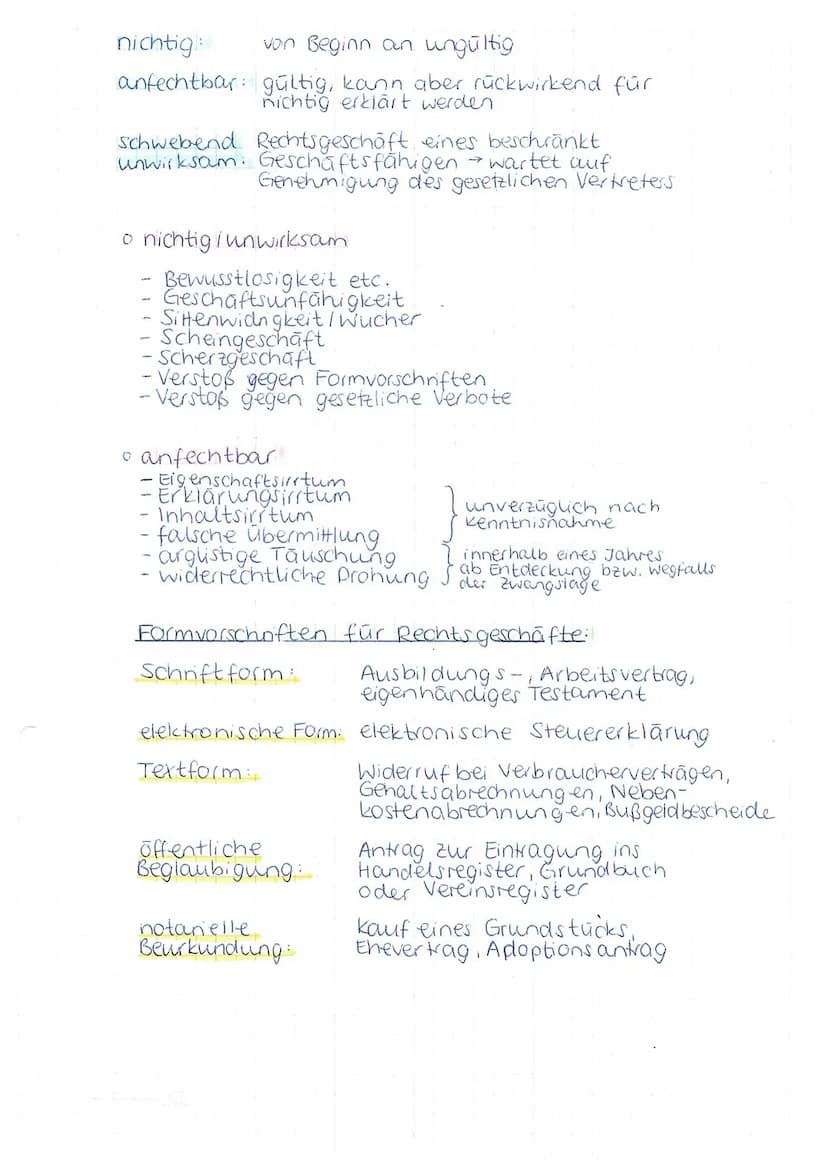 nichtig: von Beginn an ungültig
anfechtbar: gültig, kann aber rückwirkend für
nichtig erklärt werden
schwebend Rechtsgeschäft eines beschränkt
unwirksam: Geschäftsfähigen → wartet auf
Genehmigung des gesetzlichen Vertreters
o nichtig/unwirksam
- Bewusstlosigkeit etc.
- Geschäftsunfähigkeit
- Sittenwidrigkeit/Wucher
- Scheingeschäft
- Scherzgeschäft
- Verstoß gegen Formvorschriften
- Verstoß gegen gesetzliche Verbote
o anfechtbar
- Eigenschaftsirrtum
- Erklärungsirrtum
- Inhaltsirrtum
- falsche Übermittlung
} unverzüglich nach
Kenntnisnahme
- arglistige Täuschung
- widerrechtliche Drohung
} innerhalb eines Jahres
ab Entdeckung bzw. Wegfalls
der Zwangslage
Formvorschriften für Rechtsgeschäfte:
Schriftform: Ausbildungs-, Arbeitsvertrag,
eigenhändiges Testament
elektronische Form: elektronische Steuererklärung
Textform: Widerruf bei Verbraucherverträgen,
Gehaltsabrechnungen, Neben-
kostenabrechnungen, Bußgeldbescheide
öffentliche Antrag zur Eintragung ins
Beglaubigung: Handelsregister, Grundbuch
oder Vereinsregister
notarielle Kauf eines Grundstücks,
Beurkundung: Ehevertrag, Adoptionsantrag